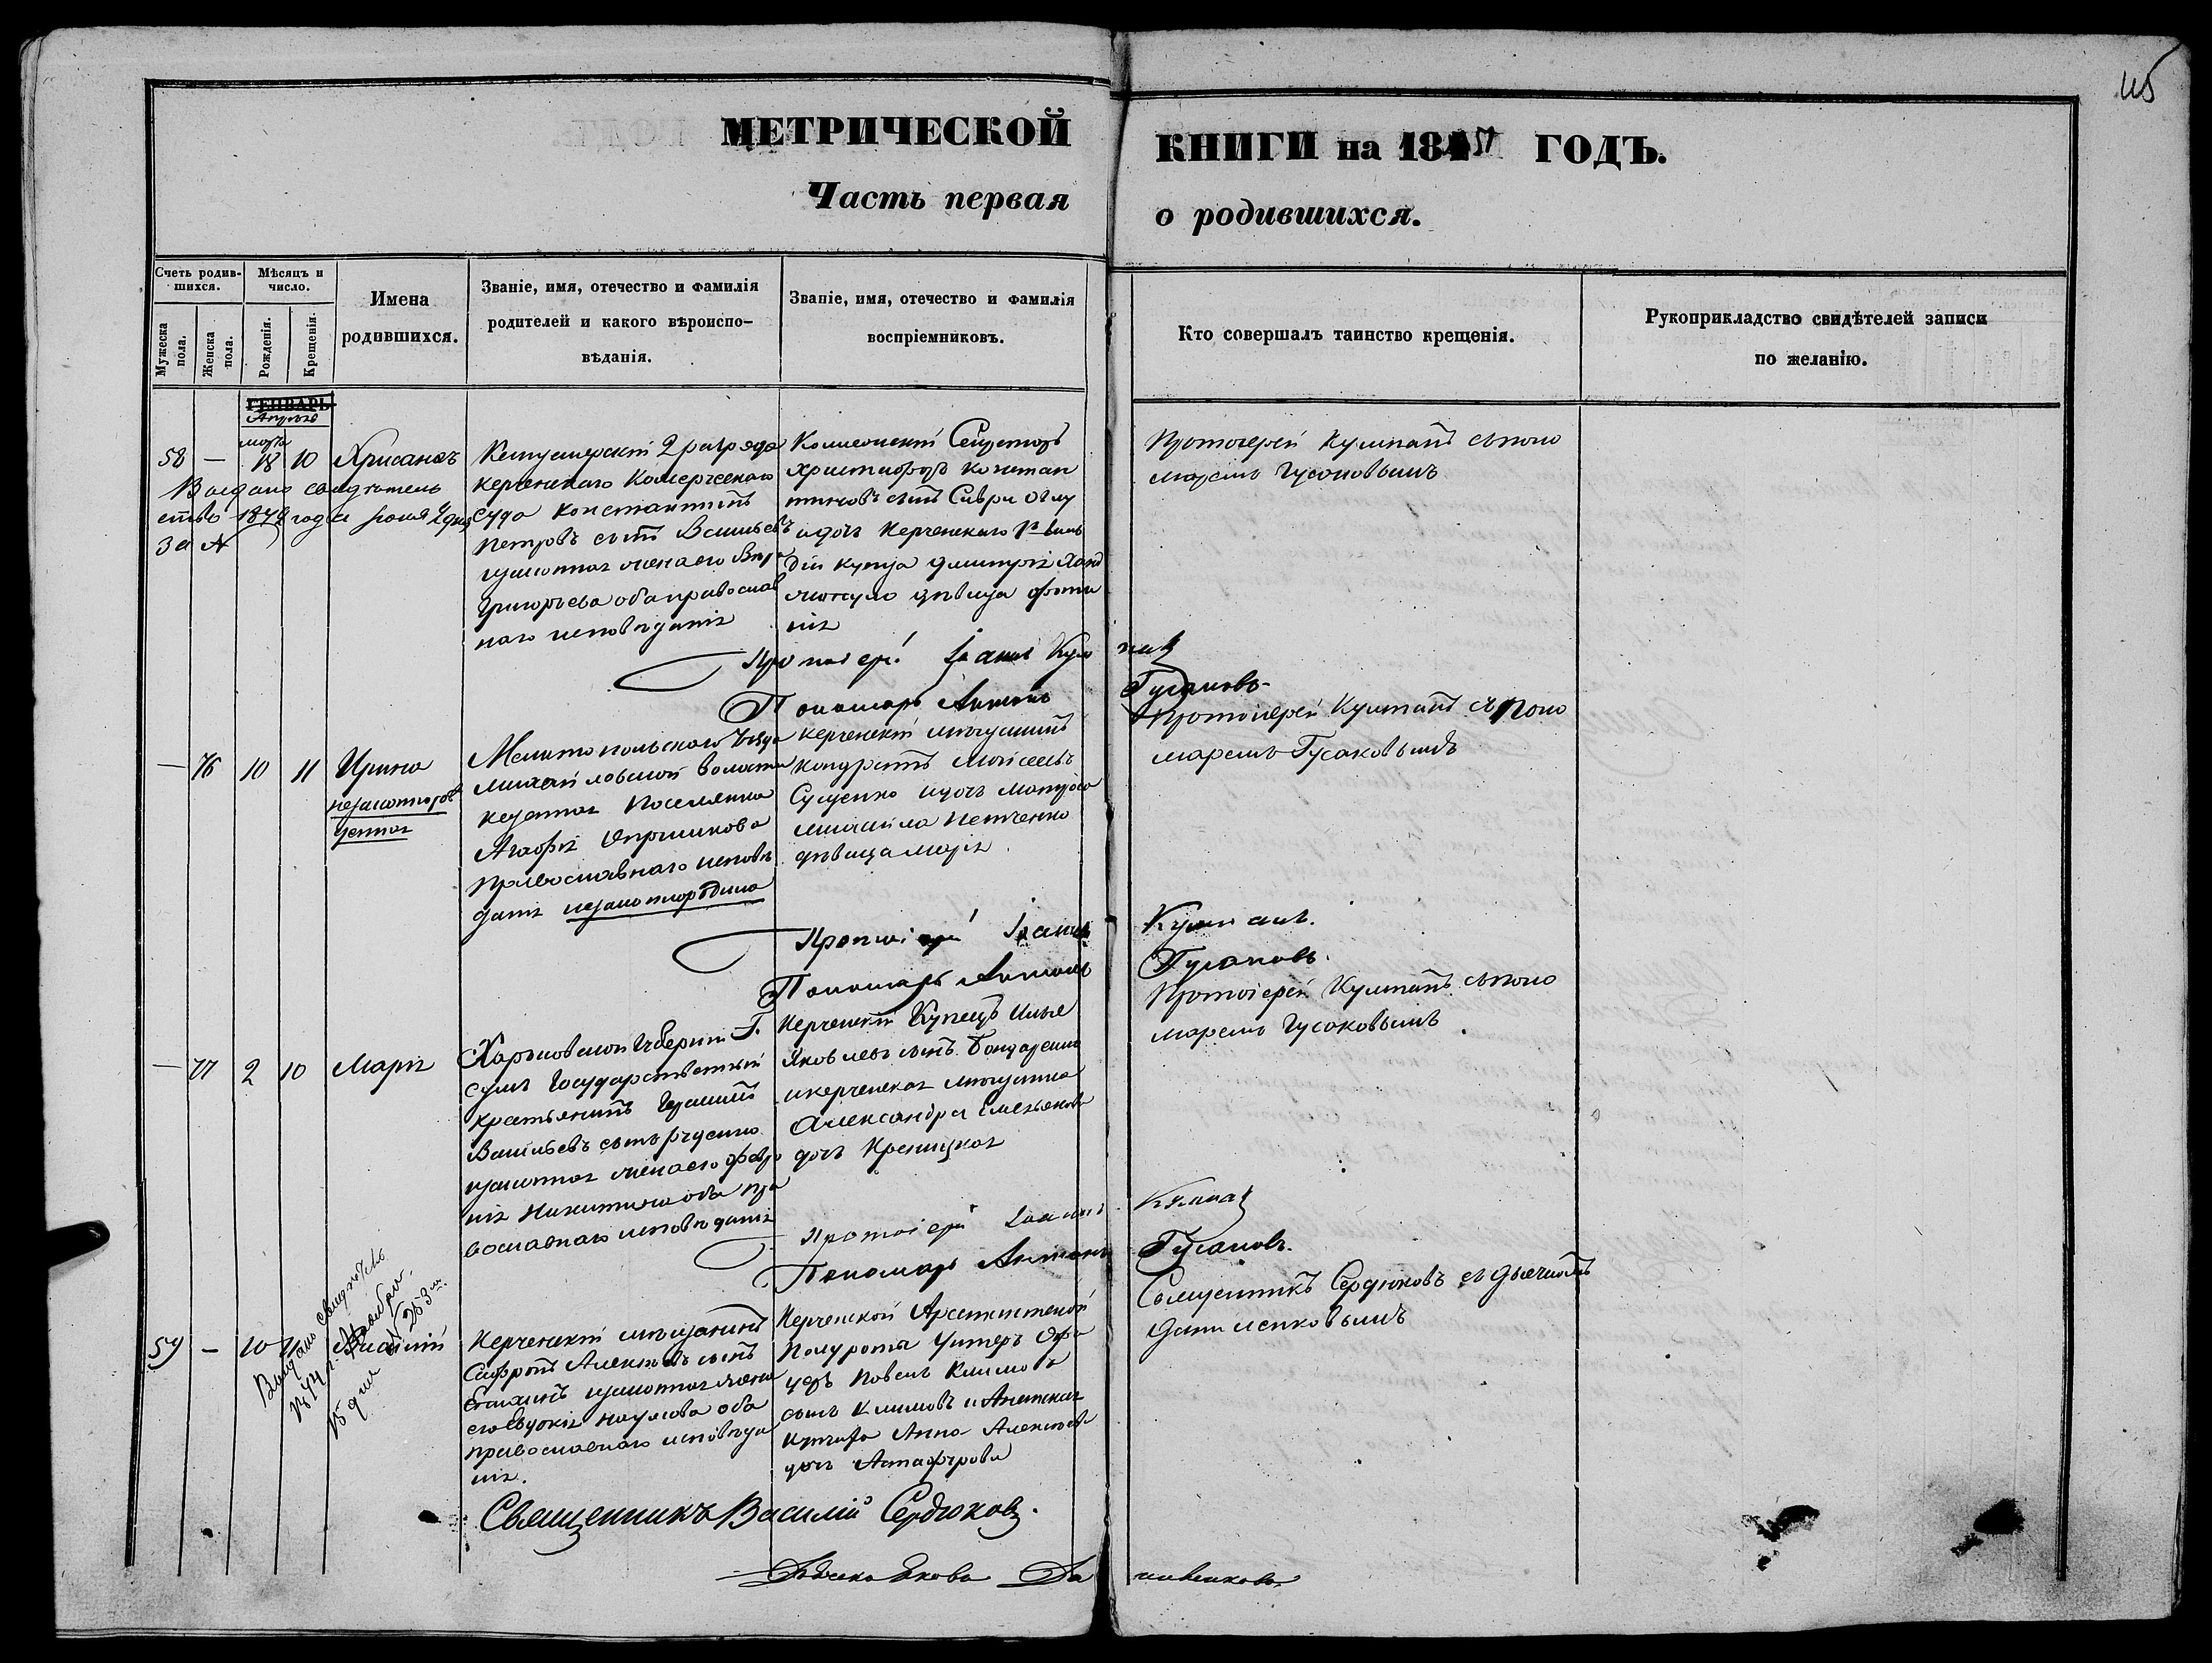 115
МЕТРИЧЕСКОЙ КНИГИ на 1851 ГОДЪ.
Часть первая о родившихся.
Счетъ родив-
шихся.
Мужеска пола.
Женска пола.
Мѣсяцъ и
число.
Рожденія.
Крещенія.
Имена
родившихся.
Званіе, имя, отечество и фамилія
родителей и какого вѣроиспо-
вѣданія.
Званіе, имя, отечество и фамилія
воспріемниковъ.
Кто совершалъ таинство крещенія.
Рукоприкладство свидѣтелей записи
по желанію.
ГЕНВАРЬ
Апрѣль
марта
58 — 18 10 Хрисанѳъ
Выдано свидѣтель
ство 1872 года Іюня 2 дня
за №
Канцелярскій 2 разряда
Керченскаго Комерческаго
Суда Константинъ
Петровъ сынъ Васильевъ
и законная жена его
Григорьева оба православ
наго исповѣданія
Коллежскій Секретарь
Христофоръ Констан
тиновъ сынъ
и дочь Керченскаго
купца Димитрія
дѣвица Фоти
нія
Протоіерей Кумпанъ съ поно
маремъ Гусаковымъ
Протоіерей Іоаннъ Кумпанъ
Пономарь Антонъ Гусаковъ
— 76 10 11 Ирина
незаконорож
денная
Мелитопольскаго Уѣзда
Михайловской волости
казенная Поселянка
Агафія Опришкова
Православнаго исповѣ
данія незаконорождена
Керченскій мѣщанинъ
Кондратъ Моисеевъ
Сущенко и дочь матроса
Михаила Петченко
дѣвица Марія
Протоіерей Кумпанъ съ поно
маремъ Гусаковымъ
Протоіерей Іоаннъ Кумпанъ.
Пономарь Антонъ Гусаковъ.
— 77 2 10 Марія
Харьковской Губерніи Г.
Сумъ Государственный
крестьянинъ Герасимъ
Васильевъ сынъ Руденко
и законная жена его Февро
нія Никитина оба пра
вославнаго исповѣданія
Керченскій Купецъ Илья
Яковлевъ сынъ Бондаренко
и керченская мѣщанка
Александра Емельянова
дочь Креницкая
Протоіерей Кумпанъ съ поно
маремъ Гусаковымъ.
Протоіерей Іоаннъ Кумпанъ
Пономарь Антонъ Гусаковъ.
59 — 10 11
Выдано свидѣтель
1874 г. Ноября
15 дня № 253
Керченскій мѣщанинъ
Сафронъ Алексѣевъ сынъ
и законная жена
его Евдокія Наумова оба
православнаго исповѣда
нія.
Керченской Арестантской
Полуроты Унтеръ Офи
церъ Павелъ Климовъ
сынъ Климовъ и
Анна Алексѣева
дочь
Священникъ Сердюковъ съ дьячкомъ
Даниленковымъ
Священникъ Василій Сердюковъ.
Дьячекъ Яковъ Даниленковъ